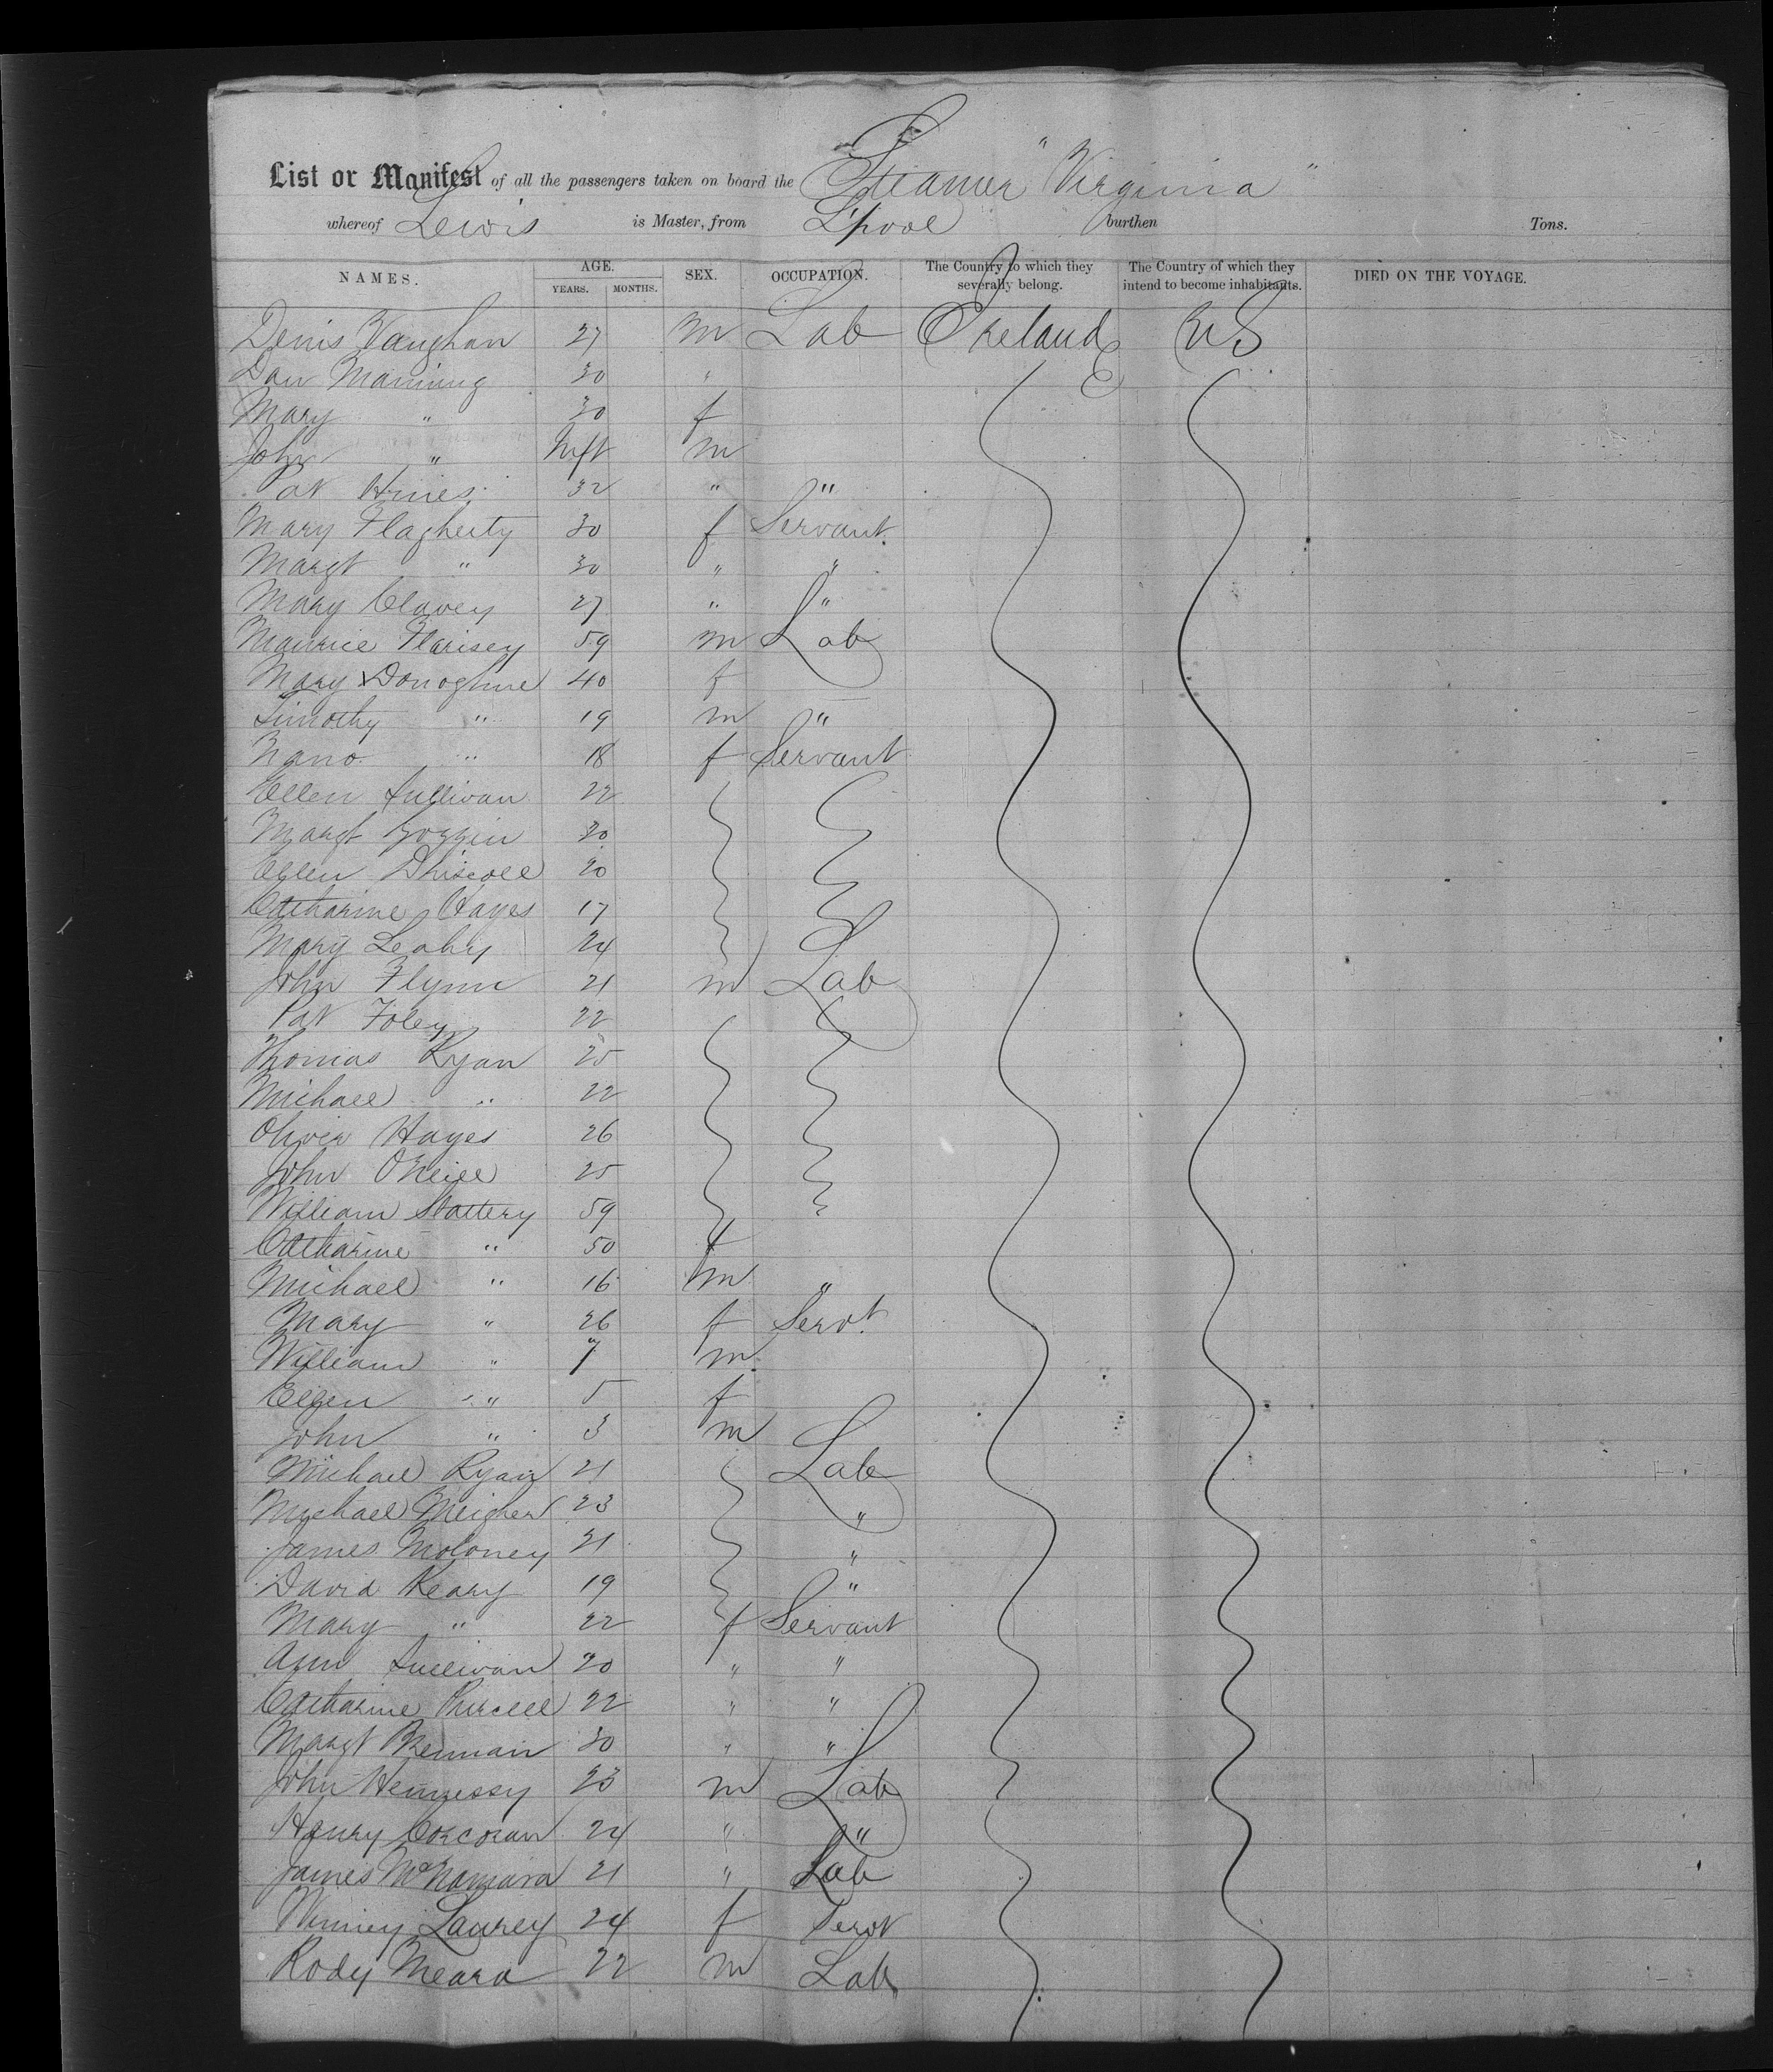 List or Manifest of all the passengers taken on board the Steamer "Virginia"
whereof Lewis is Master, from L'pool burthen Tons.
NAMES. AGE. YEARS. MONTHS. SEX. OCCUPATION. The Country to which they severally belong. The Country of which they intend to become inhabitants. DIED ON THE VOYAGE.
Denis Vaughan 27 m Lab Ireland US
Dan Manning 30 "
Mary " 30 f
John " Inft m
Pat Hines 32 " "
Mary Flagherty 30 f Servant
Margt " 30 " "
Mary Clavey 27 " "
Maurice 59 m Lab
Mary Donoghue 40 f
Timothy " 19 m "
Nano " 18 f Servant
Ellen Sullivan 22
Margt 30
Ellen Driscoll 20
Catharine Hayes 17
Mary Leahy 24
John Flynn 21 m Lab
Pat Foley 22
Thomas Ryan 25
Michael " 22
Oliver Hayes 26
John O'Neill 25
William Slattery 59
Catharine " 50 f
Michael " 16 m "
Mary " 26 f Servt
William " 7 m
Ellen " 5 f
John " 3 m
Michael Ryan 21 Lab
Michael Meigher 23 "
James Moloney 21 "
David Keary 19 "
Mary " 22 f Servant
Ann Sullivan 20 " "
Catharine Purcell 22 " "
Margt Brennan 30 " "
John Hennessy 23 m Lab
Henry Corcoran 24 " "
James McNamara 21 " Lab
Winney Laurey 24 f Servt
Rody Meara 22 m Lab